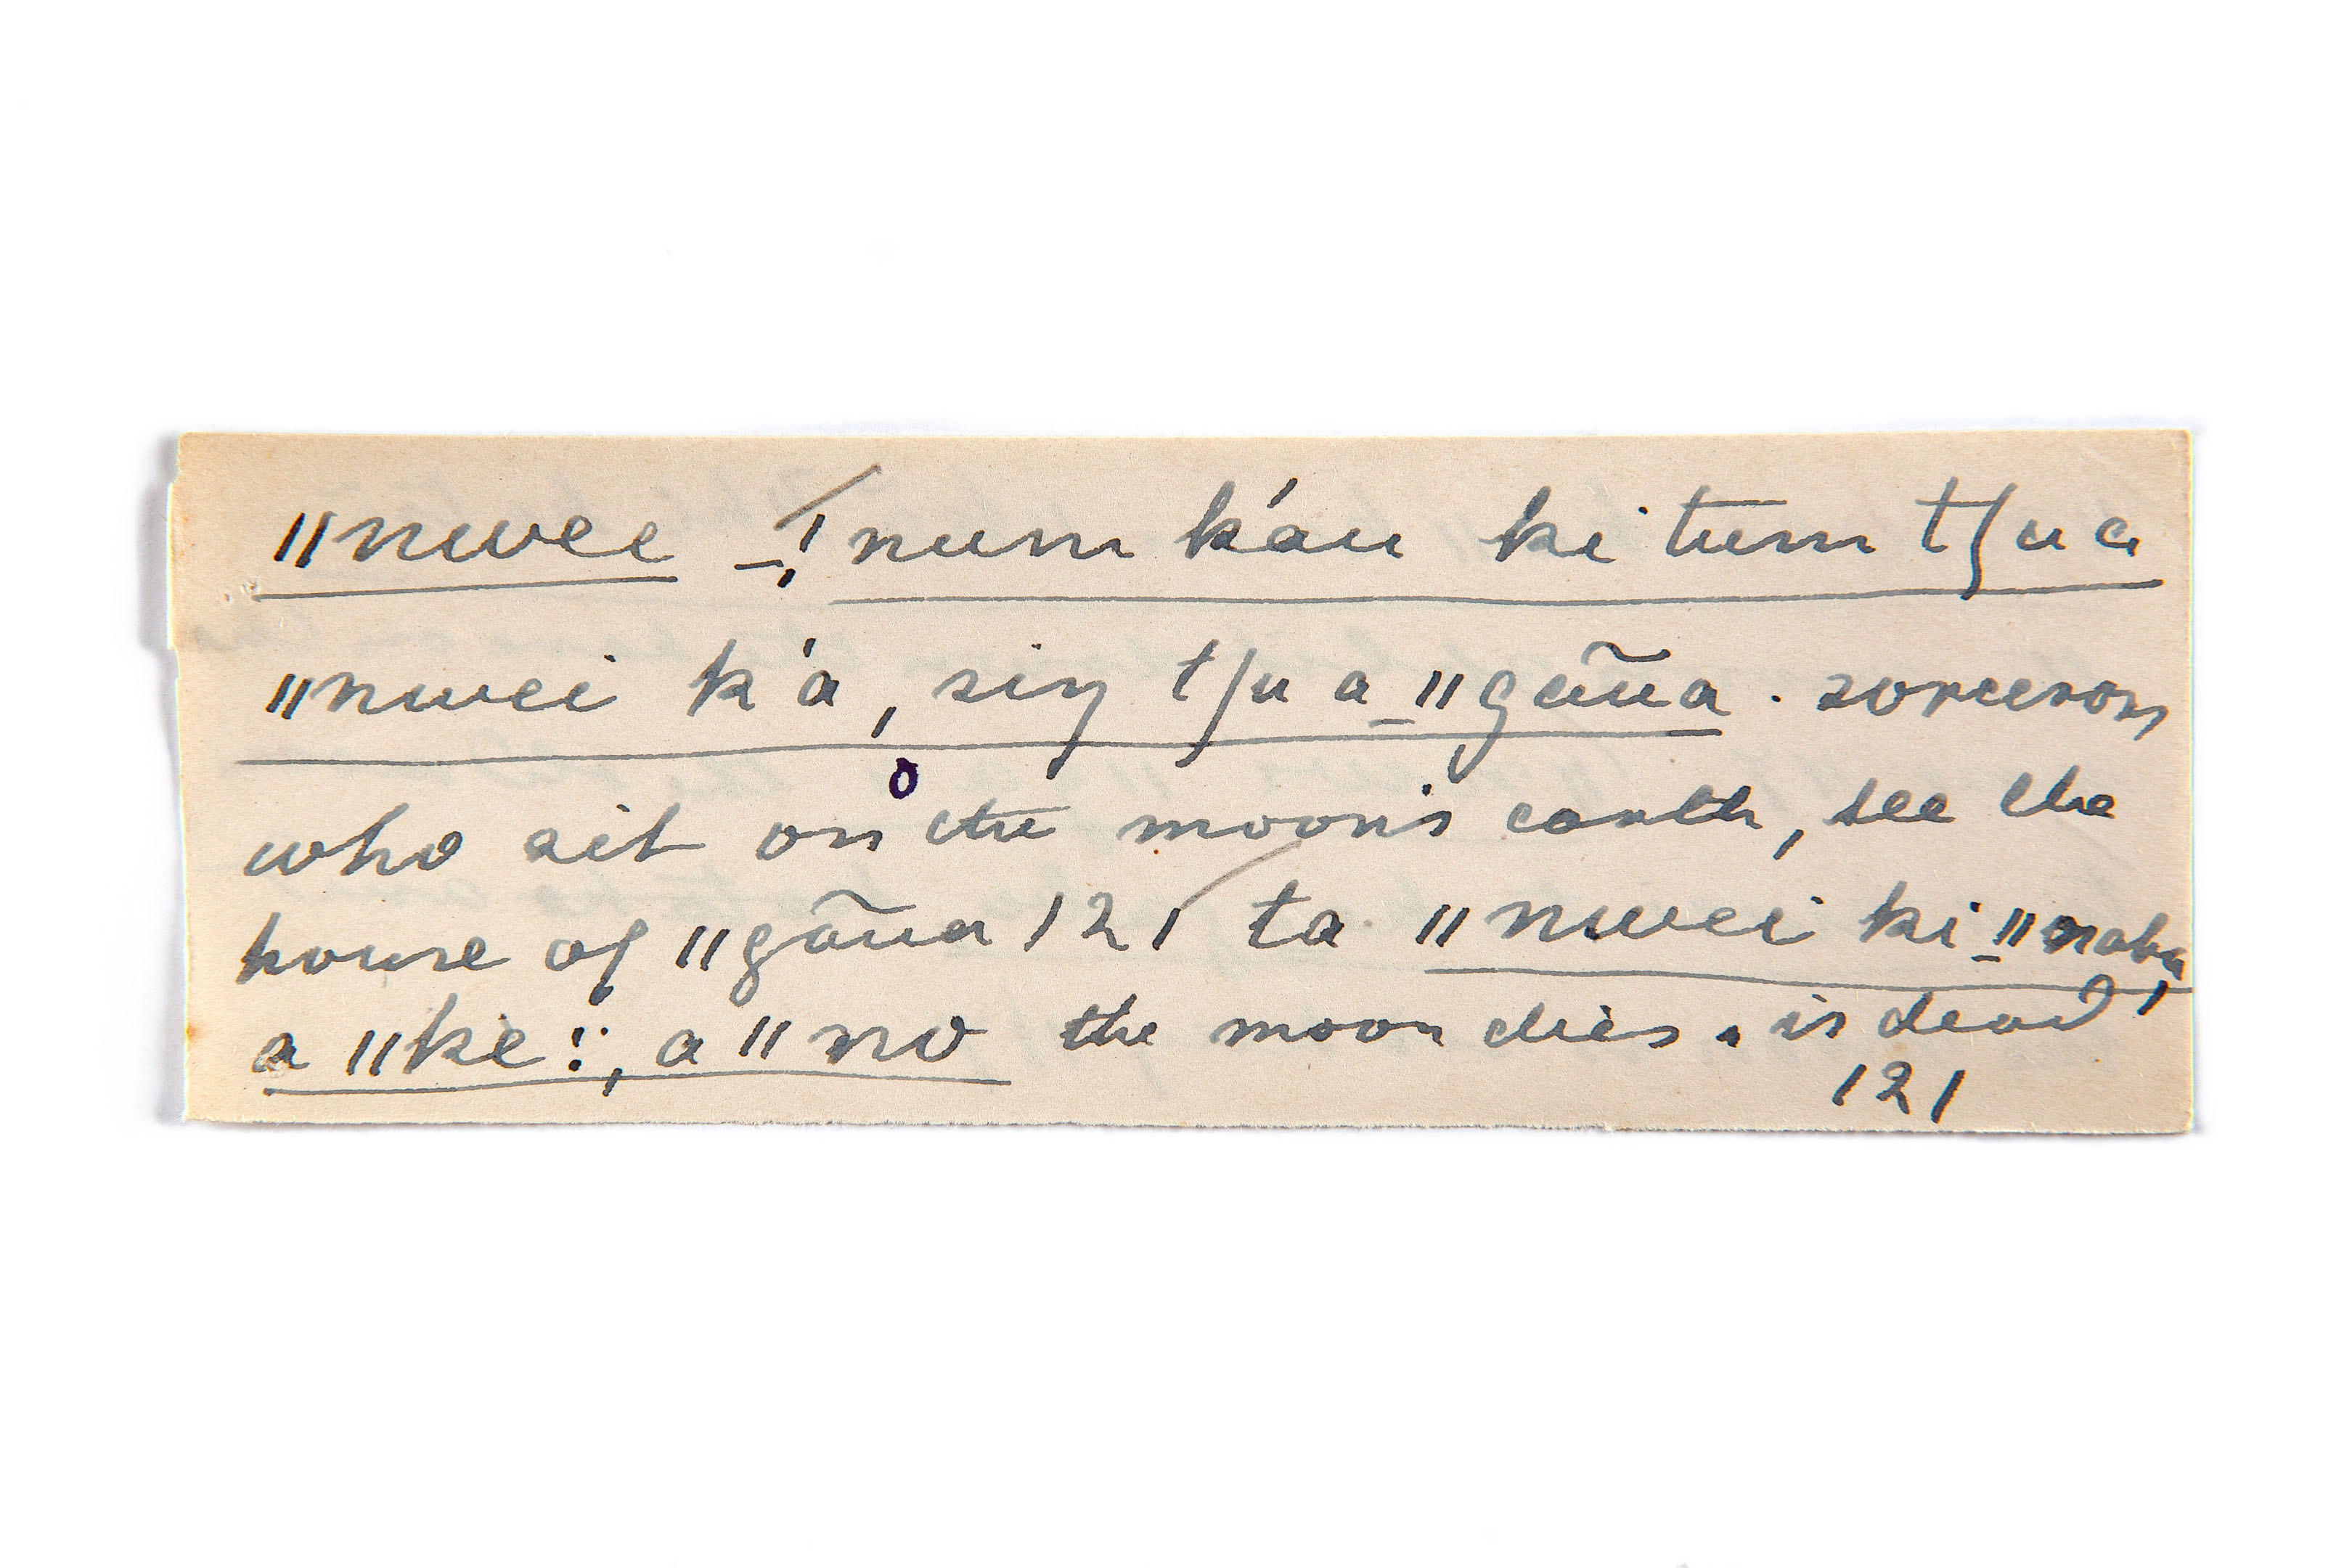 ǁnwee -ǃnum k'au ki tum tʃu a
ǁnwei k'a, siŋ tʃu a ǁgãũa. sorcerors
who sit on the moon's earth, see the
house of ǁgãũa 121 ta ǁnwei ki ǁnaba,
a ǁke:, a ǁno the moon dies. is dead
121